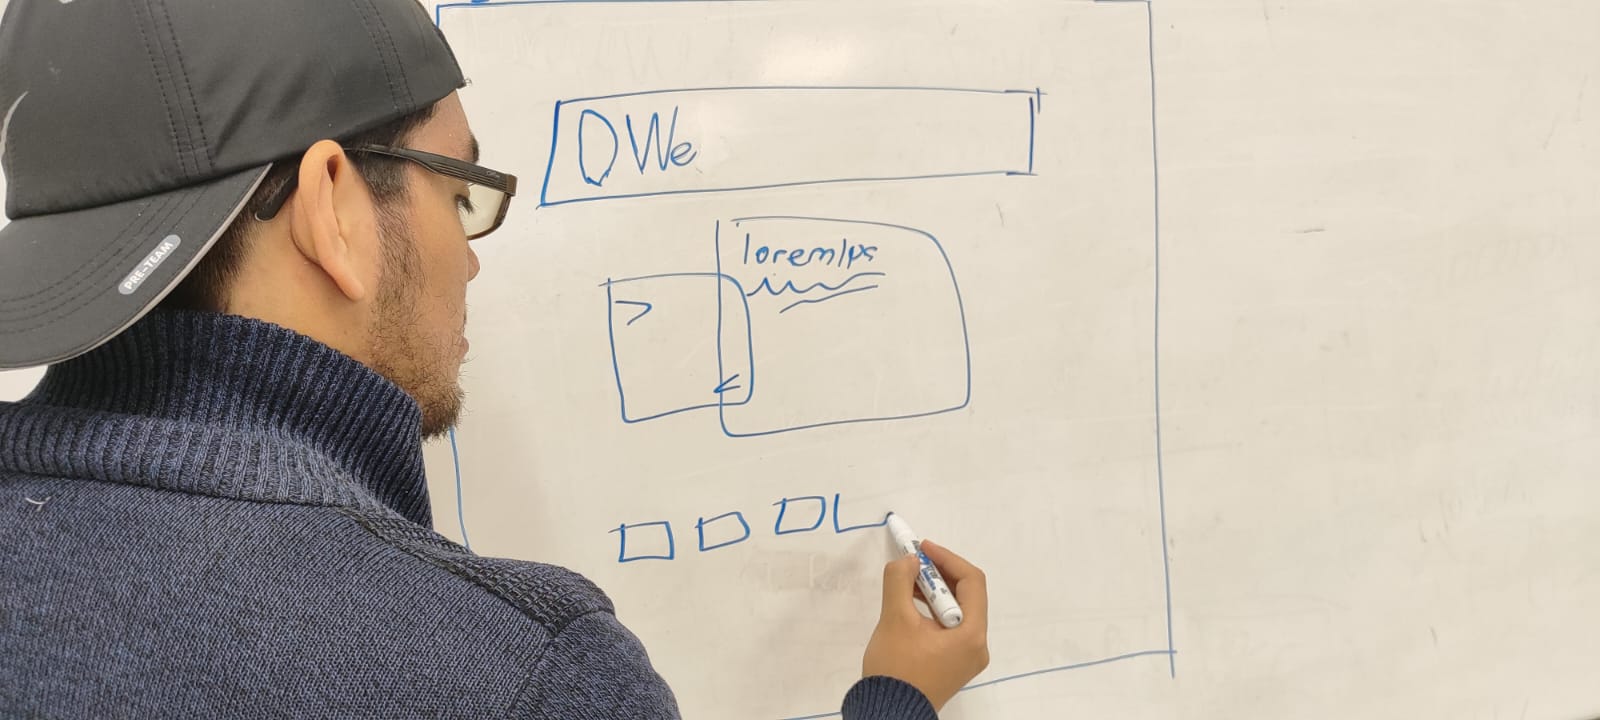 DWe
loremIps
>
<
PRE-TEAM